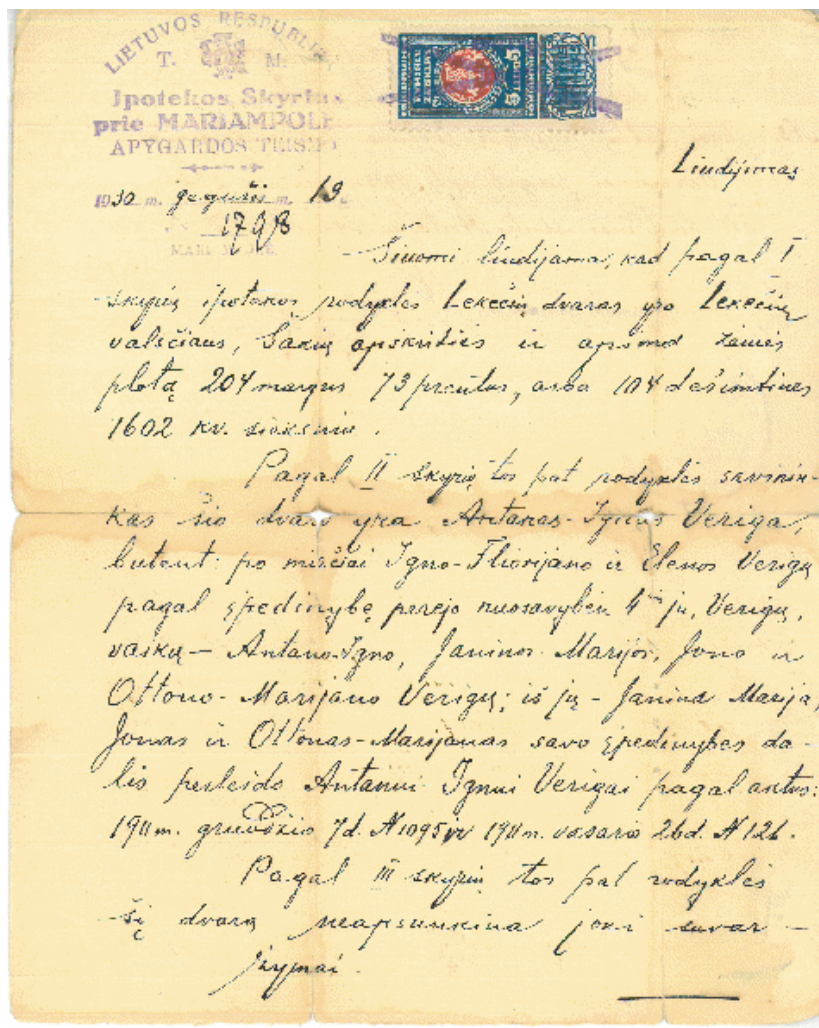 LIETUVOS RESPUBLI
T. M.
Ipotekos Skyrius
prie MARIAMPOLĖ
APYGARDOS TEISMO
1930 m. gegužės m. 19
1798
Liudijimas
Šiuomi liudijama, kad pagal I
skyrių ipotekos rodyklės Lekėčių dvaras yra Lekėčių
valsčiaus, Šakių apskrities ir apima žemės
plotą 204 margus 73 prentus, arba 104 dešimtines
1602 kv. sieksnius.
Pagal II skyrių tos pat rodyklės savinin-
kas šio dvaro yra Antanas-Ignas Veriga,
butent: po mirčiai Igno-Florijano ir Elenos Verigų
pagal įpedinybę perėjo nuosavybėn 4 jų, Verigų,
vaikų — Antano-Igno, Janinos-Marijos, Jono ir
Ottono-Marijano Verigų; iš jų - Janina Marija,
Jonas ir Ottonas-Marijanas savo įpedinybes da-
lis perleido Antanui Ignui Verigai pagal aktus:
1911 m. gruodžio 7 d. N 1095 ir 1911 m. vasario 26 d. N 126.
Pagal III skyrių tos pat rodyklės
šį dvarą neapsunkina joki suvar-
žymai.